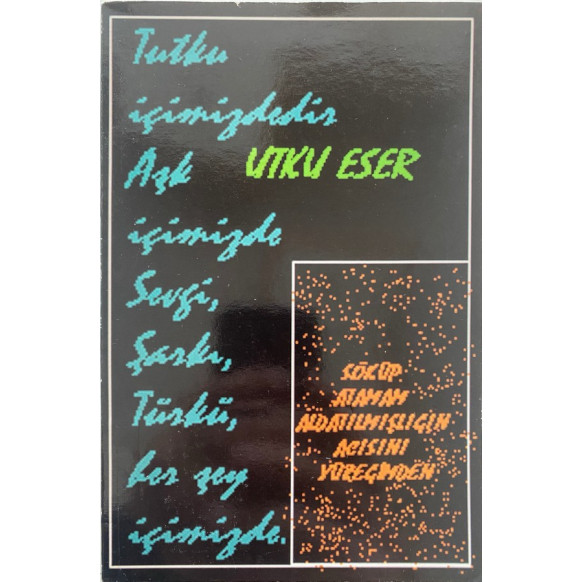 Tutku
içimizdedir
Aşk
UTKU ESER
içimizde
Sevgi,
Şarkı,
Türkü,
her şey
içimizde.
SÖKÜP
ATAMAM
ALDATILMIŞLIĞIN
ACISINI
YÜREĞİMDEN